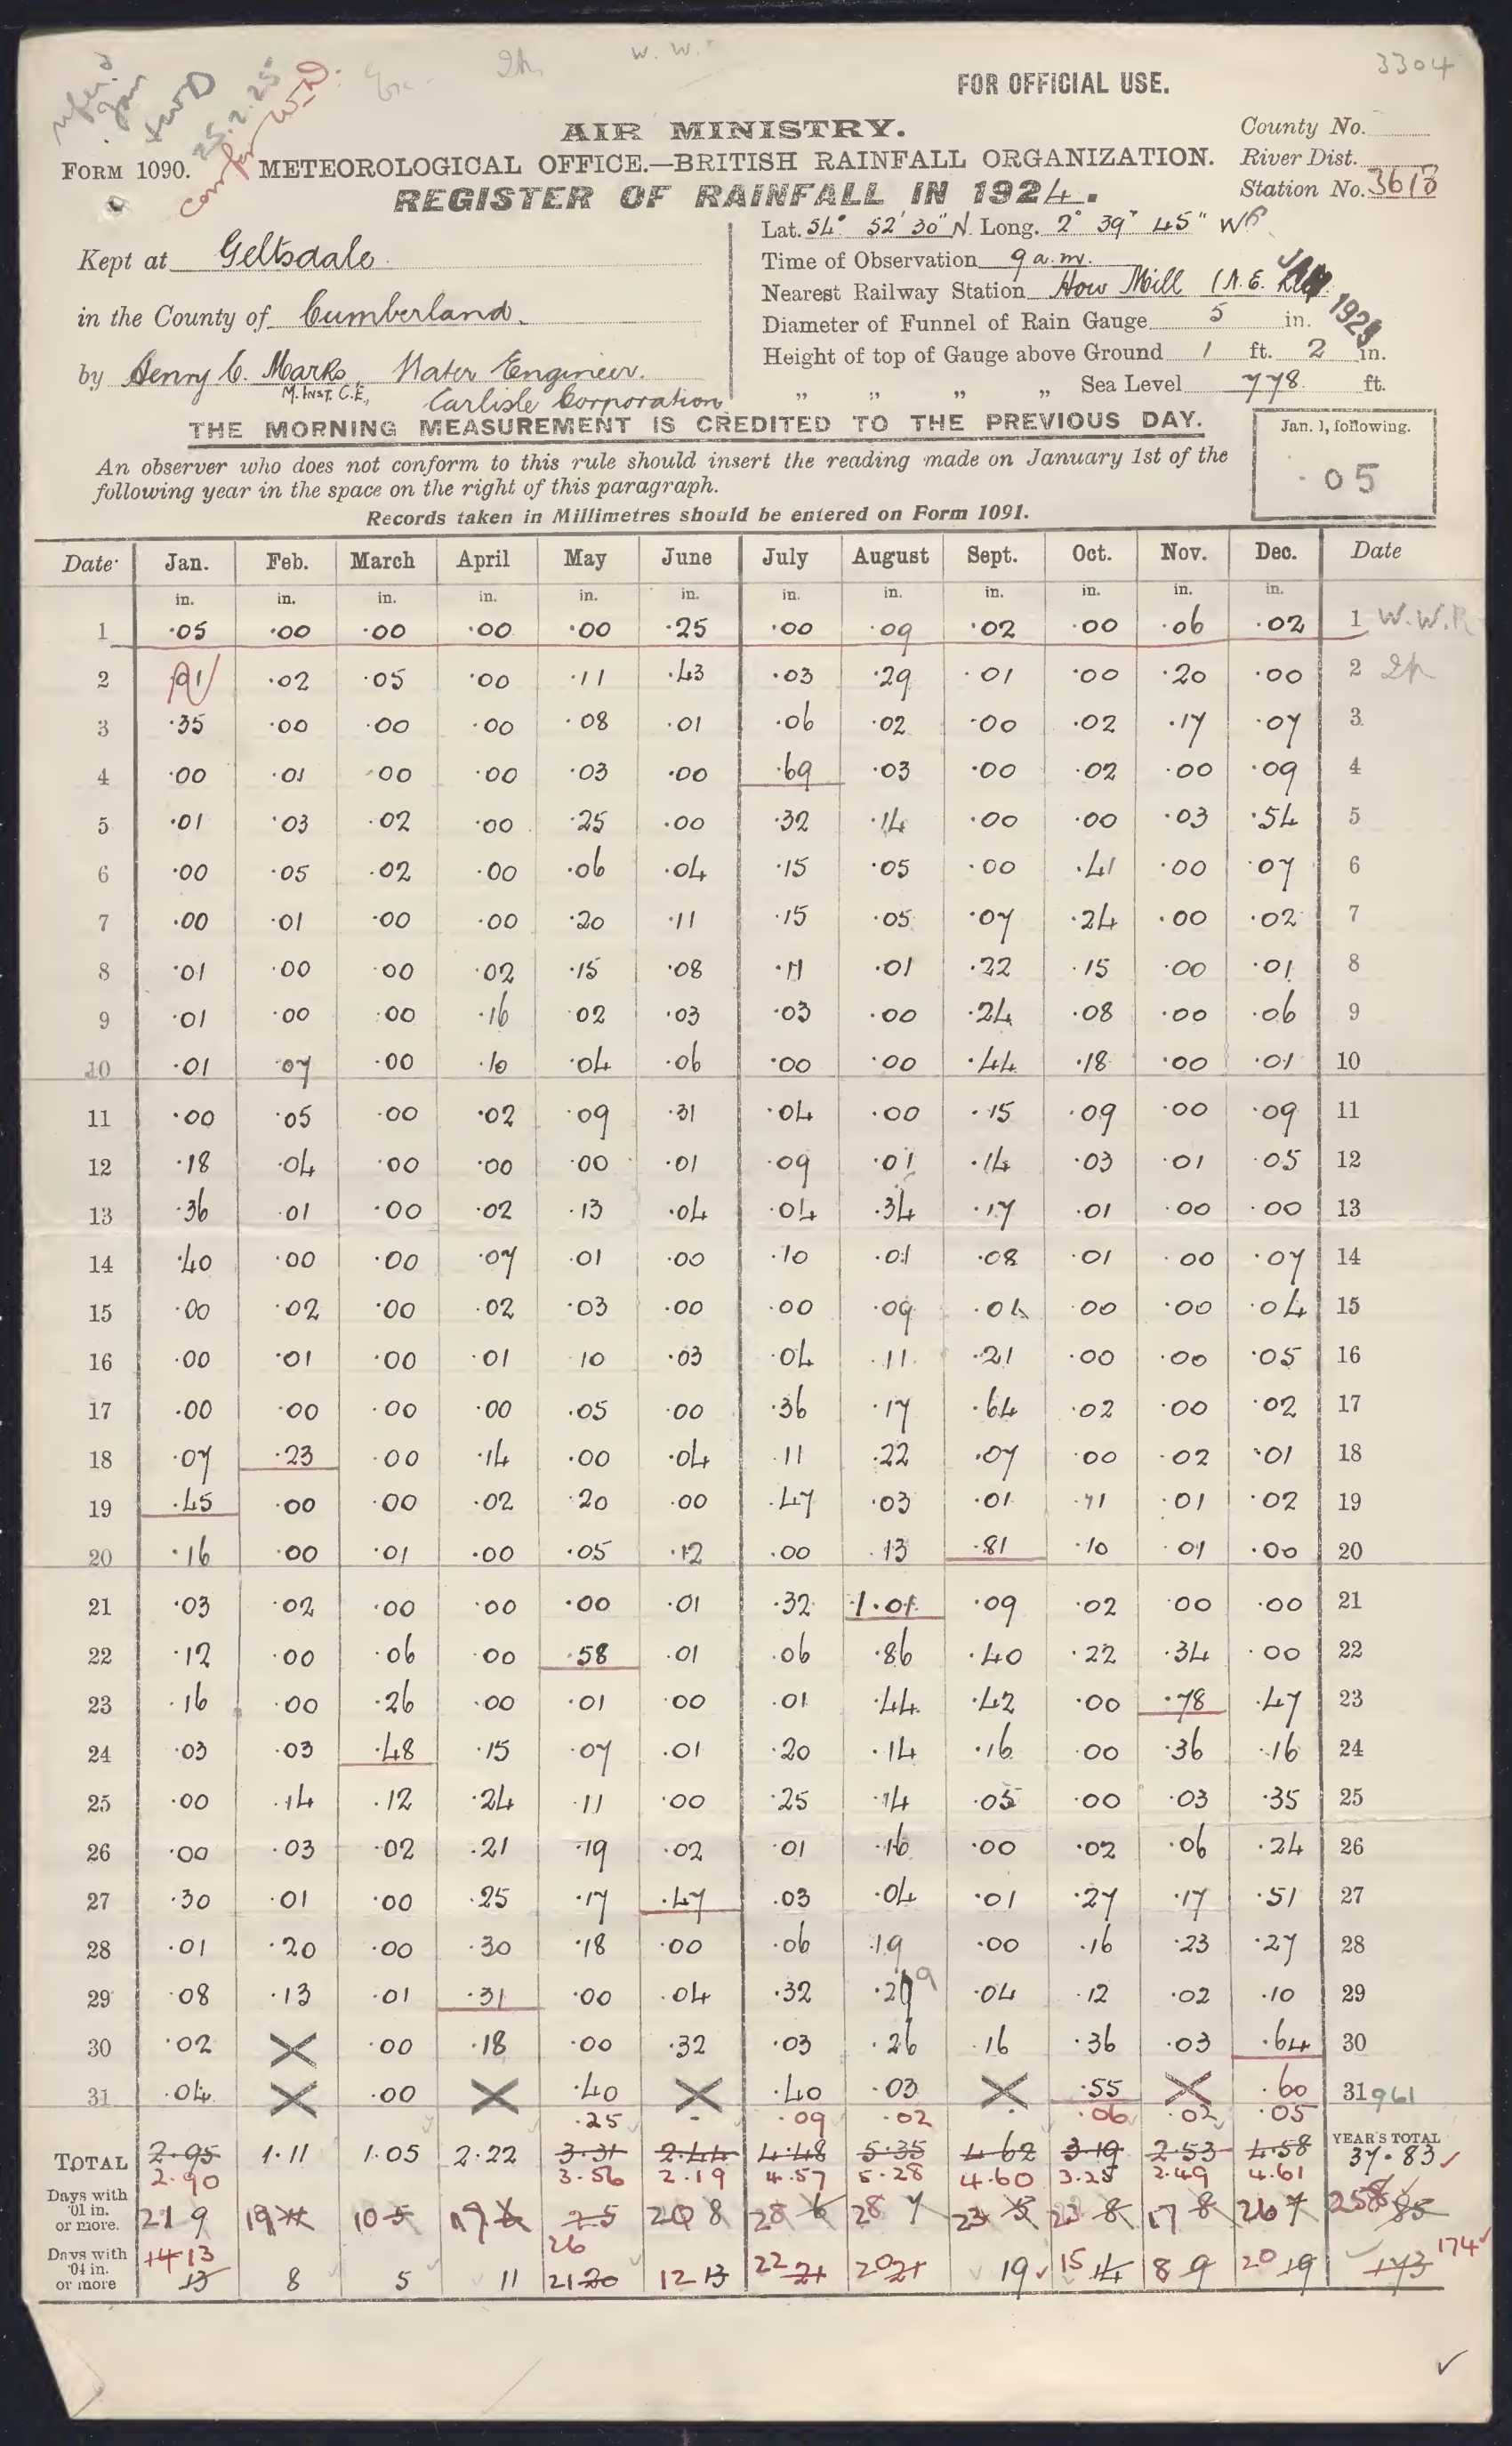 W. W.
3304
FOR OFFICIAL USE.
AIR MINISTRY.
County No.
FORM 1090. METEOROLOGICAL OFFICE.—BRITISH RAINFALL ORGANIZATION.
River Dist.
REGISTER OF RAINFALL IN 1924.
Station No. 3618
Lat. 54° 52' 30" N. Long. 2° 39' 45" W
Kept at Geltsdale
Time of Observation 9 a.m.
Nearest Railway Station How Mill (N.E.
JAN 1925
in the County of Cumberland.
Diameter of Funnel of Rain Gauge 5 in.
Height of top of Gauge above Ground 1 ft. 2 in.
by Henry C. Marks, Water Engineer.
M. INST. C.E., Carlisle Corporation
" " " " Sea Level 778 ft.
THE MORNING MEASUREMENT IS CREDITED TO THE PREVIOUS DAY.
Jan. 1, following.
·05
An observer who does not conform to this rule should insert the reading made on January 1st of the
following year in the space on the right of this paragraph.
Records taken in Millimetres should be entered on Form 1091.
Date Jan. Feb. March April May June July August Sept. Oct. Nov. Dec. Date
in. in. in. in. in. in. in. in. in. in. in. in.
1 ·05 ·00 ·00 ·00 ·00 ·25 ·00 ·09 ·02 ·00 ·06 ·02 1 W.W.R
2 ·01 ·02 ·05 ·00 ·11 ·43 ·03 ·29 ·01 ·00 ·20 ·00 2
3 ·35 ·00 ·00 ·00 ·08 ·01 ·06 ·02 ·00 ·02 ·17 ·07 3
4 ·00 ·01 ·00 ·00 ·03 ·00 ·69 ·03 ·00 ·02 ·00 ·09 4
5 ·01 ·03 ·02 ·00 ·25 ·00 ·32 ·14 ·00 ·00 ·03 ·54 5
6 ·00 ·05 ·02 ·00 ·06 ·04 ·15 ·05 ·00 ·41 ·00 ·07 6
7 ·00 ·01 ·00 ·00 ·20 ·11 ·15 ·05 ·07 ·24 ·00 ·02 7
8 ·01 ·00 ·00 ·02 ·15 ·08 ·11 ·01 ·22 ·15 ·00 ·01 8
9 ·01 ·00 ·00 ·16 ·02 ·03 ·03 ·00 ·24 ·08 ·00 ·06 9
10 ·01 ·07 ·00 ·10 ·04 ·06 ·00 ·00 ·44 ·18 ·00 ·01 10
11 ·00 ·05 ·00 ·02 ·09 ·31 ·04 ·00 ·15 ·09 ·00 ·09 11
12 ·18 ·04 ·00 ·00 ·00 ·01 ·09 ·01 ·14 ·03 ·01 ·05 12
13 ·36 ·01 ·00 ·02 ·13 ·04 ·04 ·34 ·17 ·01 ·00 ·00 13
14 ·40 ·00 ·00 ·07 ·01 ·00 ·10 ·01 ·08 ·01 ·00 ·07 14
15 ·00 ·02 ·00 ·02 ·03 ·00 ·00 ·09 ·01 ·00 ·00 ·04 15
16 ·00 ·01 ·00 ·01 ·10 ·03 ·04 ·11 ·21 ·00 ·00 ·05 16
17 ·00 ·00 ·00 ·00 ·05 ·00 ·36 ·17 ·64 ·02 ·00 ·02 17
18 ·07 ·23 ·00 ·14 ·00 ·04 ·11 ·22 ·07 ·00 ·02 ·01 18
19 ·45 ·00 ·00 ·02 ·20 ·00 ·47 ·03 ·01 ·11 ·01 ·02 19
20 ·16 ·00 ·01 ·00 ·05 ·12 ·00 ·13 ·81 ·10 ·01 ·00 20
21 ·03 ·02 ·00 ·00 ·00 ·01 ·32 1·01 ·09 ·02 ·00 ·00 21
22 ·12 ·00 ·06 ·00 ·58 ·01 ·06 ·86 ·40 ·22 ·34 ·00 22
23 ·16 ·00 ·26 ·00 ·01 ·00 ·01 ·44 ·42 ·00 ·78 ·47 23
24 ·03 ·03 ·48 ·15 ·07 ·01 ·20 ·14 ·16 ·00 ·36 ·16 24
25 ·00 ·14 ·12 ·24 ·11 ·00 ·25 ·14 ·05 ·00 ·03 ·35 25
26 ·00 ·03 ·02 ·21 ·19 ·02 ·01 ·16 ·00 ·02 ·06 ·24 26
27 ·30 ·01 ·00 ·25 ·17 ·47 ·03 ·04 ·01 ·27 ·17 ·51 27
28 ·01 ·20 ·00 ·30 ·18 ·00 ·06 ·19 ·00 ·16 ·23 ·27 28
29 ·08 ·13 ·01 ·31 ·00 ·04 ·32 ·29 ·04 ·12 ·02 ·10 29
30 ·02 X ·00 ·18 ·00 ·32 ·03 ·26 ·16 ·36 ·03 ·64 30
31 ·04 X ·00 X ·40 X ·40 ·03 X ·55 X ·60 31 961
·25 - ·09 ·02 · ·06 ·02 ·05
TOTAL 2·95 1·11 1·05 2·22 3·31 2·44 4·48 5·35 4·62 3·19 2·53 4·58 YEAR'S TOTAL 37·83
2·90 3·56 2·19 4·57 5·28 4·60 3·25 2·49 4·61
Days with ·01 in. or more. 21 9 19 10 5 17 6 25 20 8 28 6 28 7 23 23 8 17 8 26 7 258 85
26
Days with ·04 in. or more 14 13 13 8 5 11 21 20 12 13 22 21 20 21 19 15 14 8 9 20 19 173 174